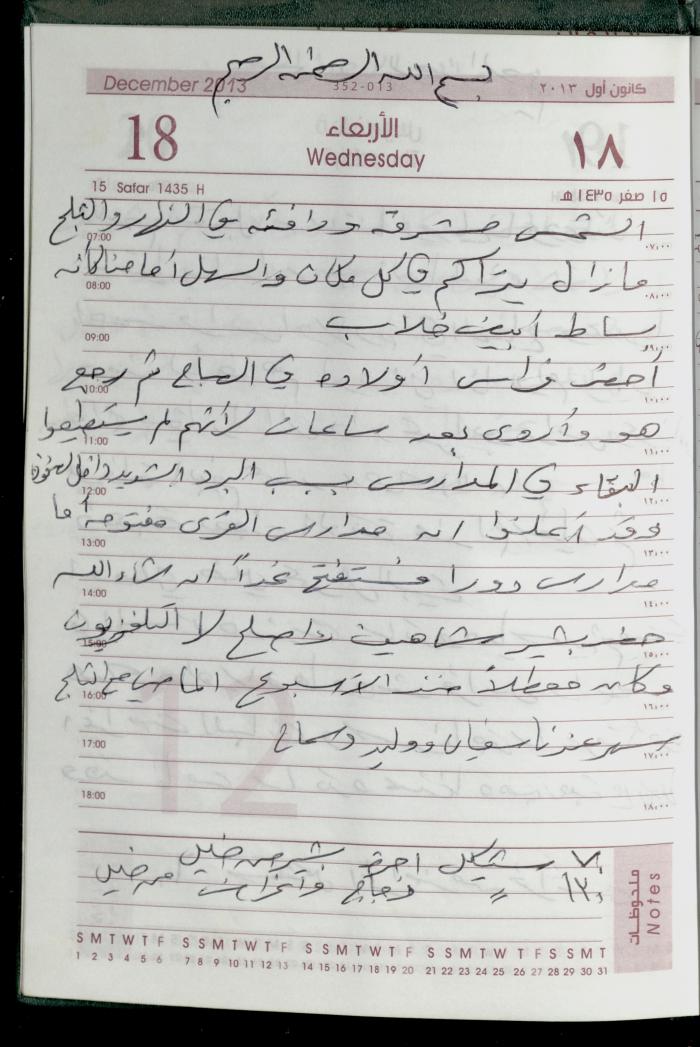 بسم الله الرحمن الرحيم
December 2013 352-013 كانون أول ٢٠١٣
18 الأربعاء ١٨
Wednesday
15 Safar 1435 H ١٥ صفر ١٤٣٥ هـ
الشمس مشرقة ودافئة في النهار والثلج
07:00 ٠٧,٠٠
مازال يتراكم في كل مكان والسهل أمامنا كأنه
08:00 ٠٨,٠٠
بساط أبيض خلاب
09:00 ٠٩,٠٠
أحضر فراس أولاده في الصباح ثم رجع
10:00 ١٠,٠٠
هو وأروى بعد ساعات لأنهم لم يستطيعوا
11:00 ١١,٠٠
البقاء في المدارس بسبب البرد الشديد داخل الغرف
12:00 ١٢,٠٠
وقد أعلنوا ان مدارس القرى مفتوحة أما
13:00 ١٣,٠٠
مدارس دورا فستفتح غداً ان شاء الله
14:00 ١٤,٠٠
حضر بشير شاهين واصلح لنا التلفزيون
15:00 ١٥,٠٠
وكان معطلاً منذ الأسبوع الماضي مع الثلج
16:00 ١٦,٠٠
سهر عندنا سفيان ووليد وسماح
17:00 ١٧,٠٠
18:00 ١٨,٠٠
٧٠ شيكل اجرة بشير من
١٣٠ دجاج من
ملحوظات Notes
S M T W T F S S M T W T F S S M T W T F S S M T W T F S S M T
1 2 3 4 5 6 7 8 9 10 11 12 13 14 15 16 17 18 19 20 21 22 23 24 25 26 27 28 29 30 31
12